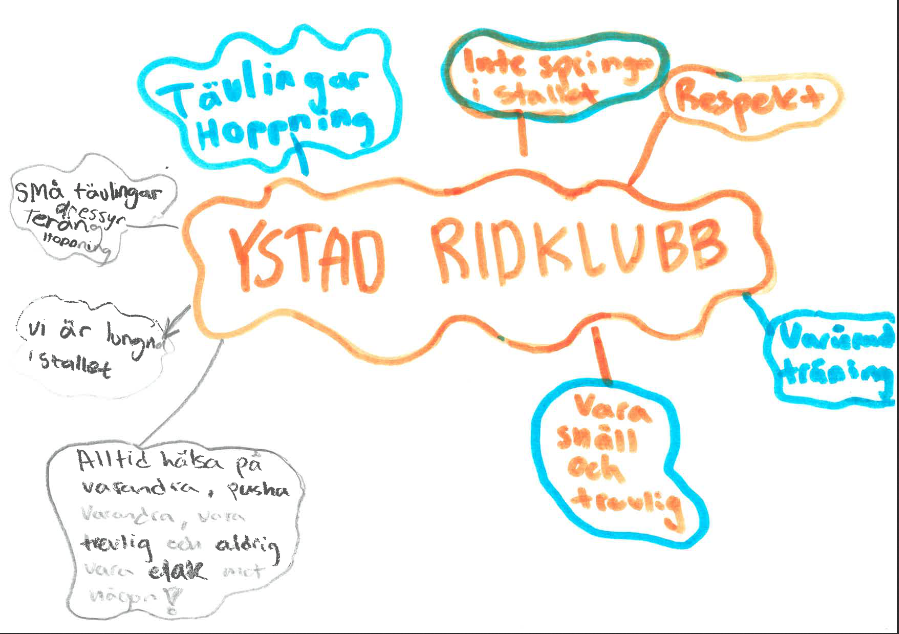 Tävlingar
Hoppning
Inte springa
i stallet
Respekt
små tävlingar
dressyr
Teräng
Hoppning
YSTAD RIDKLUBB
vi är lungna
i stallet
Varierad
träning
Vara
snäll
och
trevlig
Alltid hälsa på
varandra, pusha
varandra, vara
trevlig och aldrig
vara elak mot
någon!